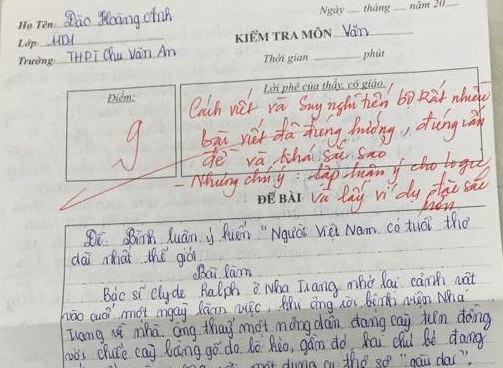 Ngày ... tháng ... năm 20...
Họ Tên: Đào Hoàng Anh
KIỂM TRA MÔN Văn
Lớp: 11D1
Trường: THPT Chu Văn An
Thời gian phút
Điểm: Lời phê của thầy, cô giáo
9
Cách viết và suy nghĩ tiến bộ rất nhiều
bài viết đã đúng hướng, đúng vấn
đề và khá sắc sảo
- Nhưng chú ý: lập luận ý cho logic
và lấy ví dụ đặc sắc
hơn
ĐỀ BÀI
Đề: Bình luận ý kiến "Người Việt Nam có tuổi thơ
dài nhất thế giới
Bài làm
Bác sĩ Clyde Ralph ở Nha Trang nhớ lại cảnh vật
vào cuối một ngày làm việc, khi ông rời bệnh viện Nha
Trang về nhà ông thấy một nông dân đang cày trên đồng
với chiếc cày bằng gỗ do bò kéo, gần đó hai chú bé đang
một dụng cụ thô sơ "gàu dai".